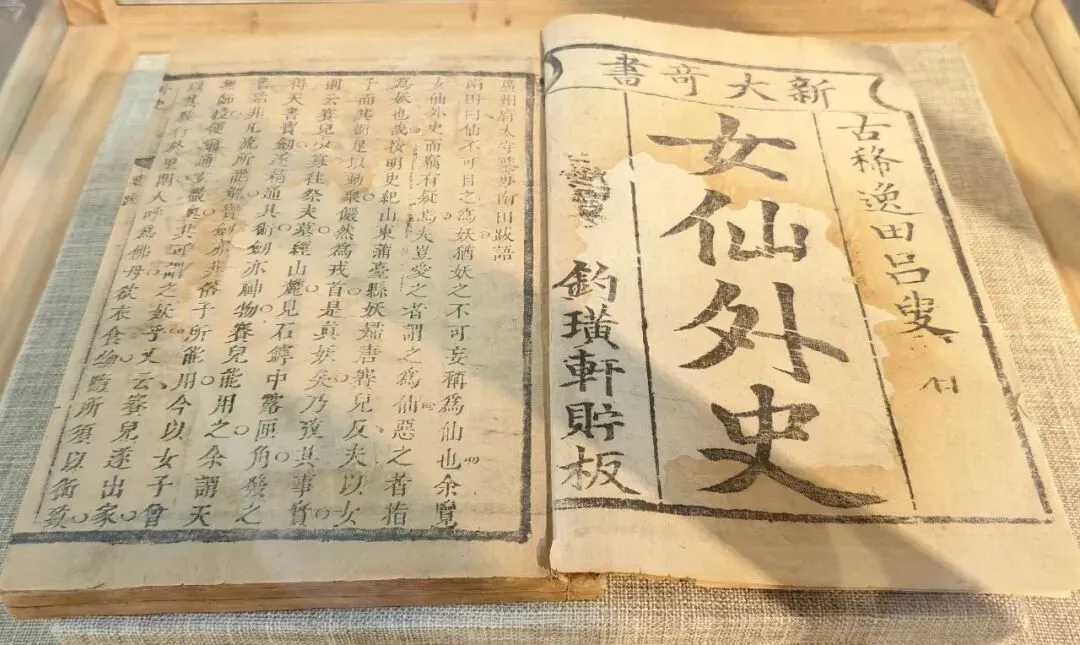 新大竒書
古稀逸田呂叟
女仙外史
釣璜軒貯板
廣州府太守葉旉南田跋語
南田曰仙不可目之為妖猶妖之不可妄稱為仙也余覽
女仙外史而竊有疑焉夫豈愛之者謂之為仙惡之者指
為妖也哉按明史紀山東蒲臺縣妖婦唐賽兒反夫以女
子而其術足以動衆儼然為戎首是真妖矣乃攷其事實
則云賽兒少寡往祭夫墓經山麓見石罅中露匣角發之
得天書寶劍遂精通其術劍亦神物賽兒能用之余謂天
書非凡流所能解寶劍亦非俗子所能用今以女子曾
無師授便爾通其可謂之妖乎又云賽兒遂出家
以其教行於里閭人呼為佛母欲衣食物所須以術致
外史 葉跋